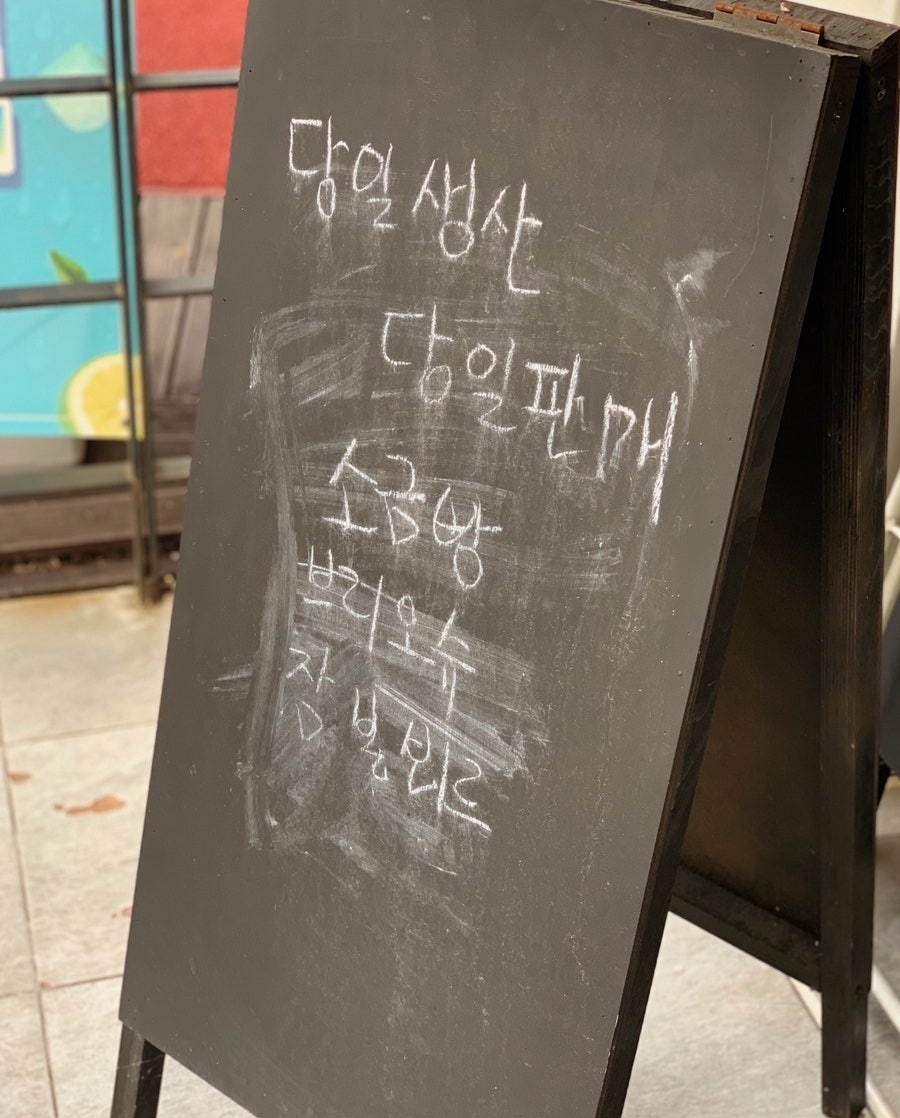 당일생산
당일판매
소금빵
쁘리오슈
잠발뵈르